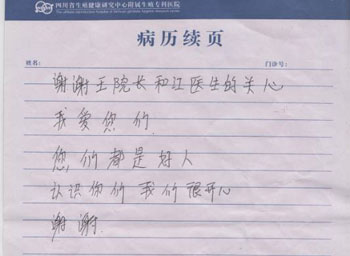 四川省生殖健康研究中心附属生殖专科医院
病历续页
姓名: 门诊号:
谢谢王院长和江医生的关心
我爱您们
您们都是好人
认识你们我们很开心
谢谢